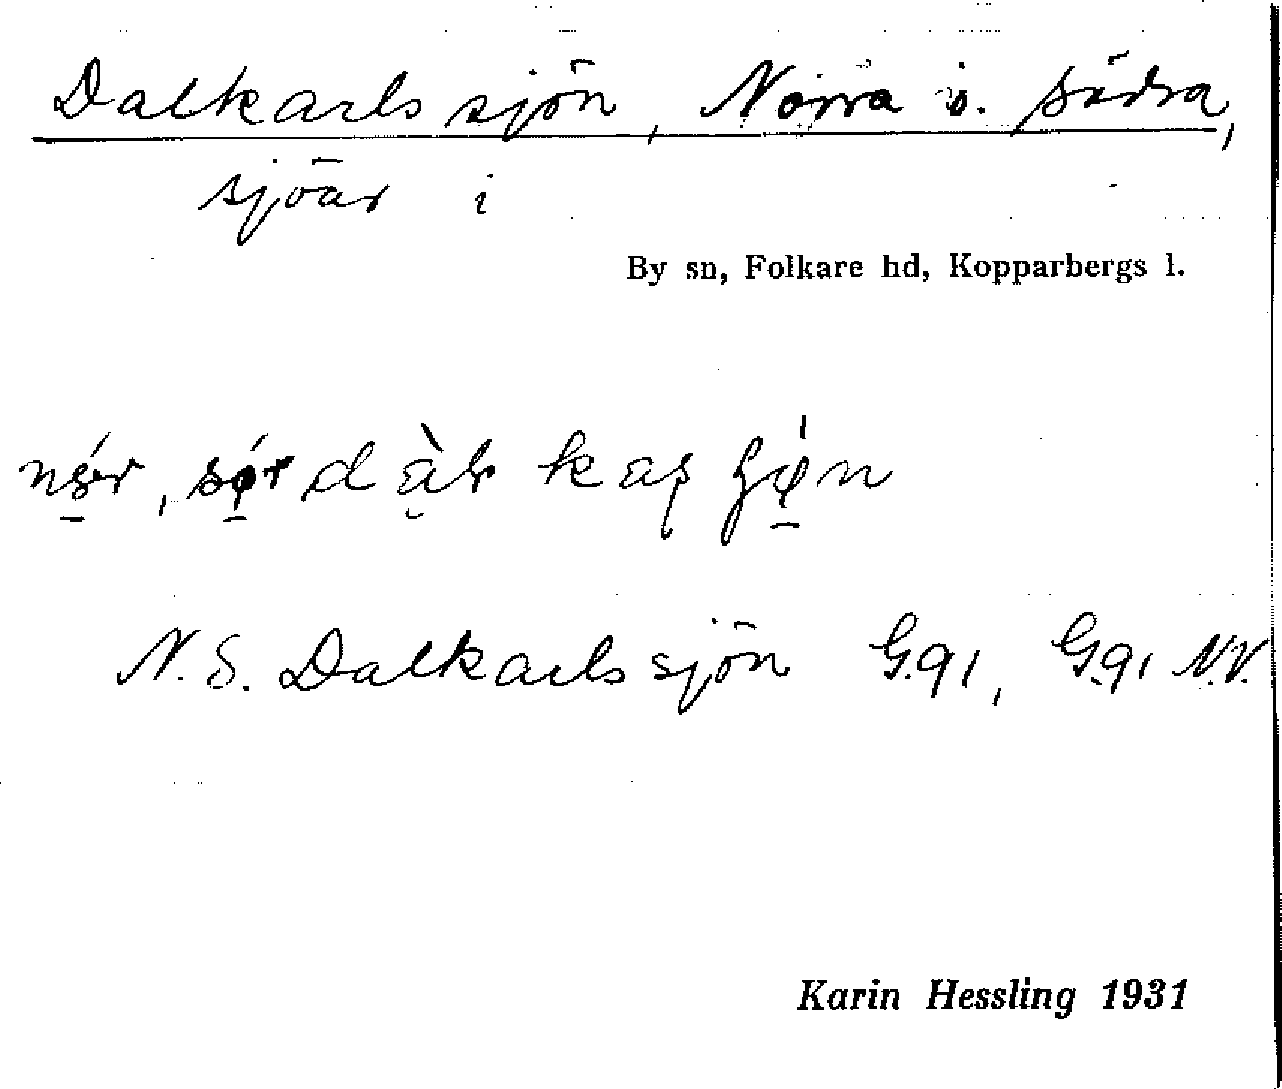 Dalkarlssjön, Norra o. Södra,
sjöar i
By sn, Folkare hd, Kopparbergs l.
N. S. Dalkarlssjön G.q1, G.q1 N.V.
Karin Hessling 1931